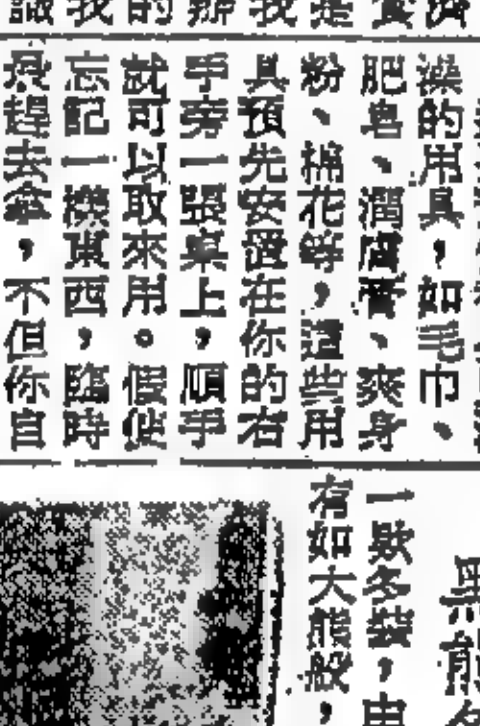 澡的用具，如毛巾、
肥皂、潤膚膏、爽身
粉、棉花等，這些用
具預先安置在你的右
手旁一張桌上，順手
就可以取來用。假使
忘記一樣東西，臨時
趕去拿，不但你自
一款多裝，由
有如大熊般，
黑熊